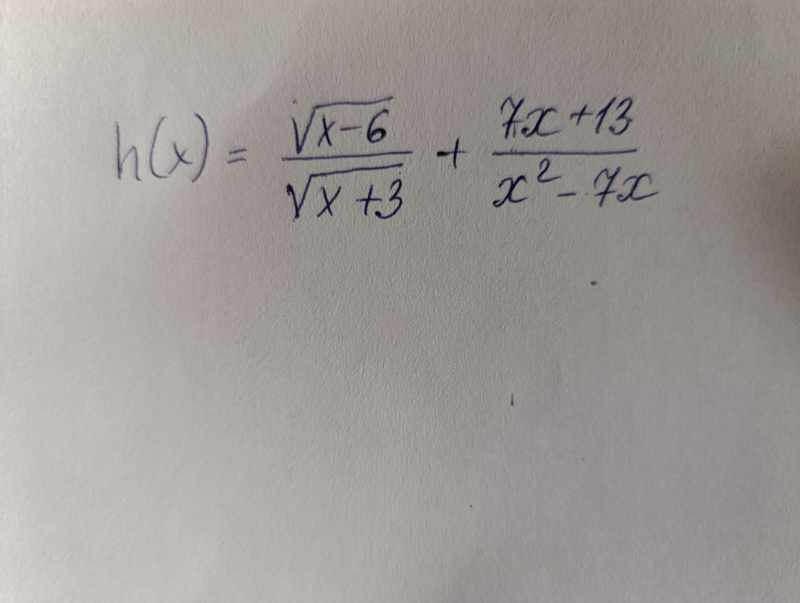 h(x) = √(x-6)/√(x+3) + (7x+13)/(x²-7x)